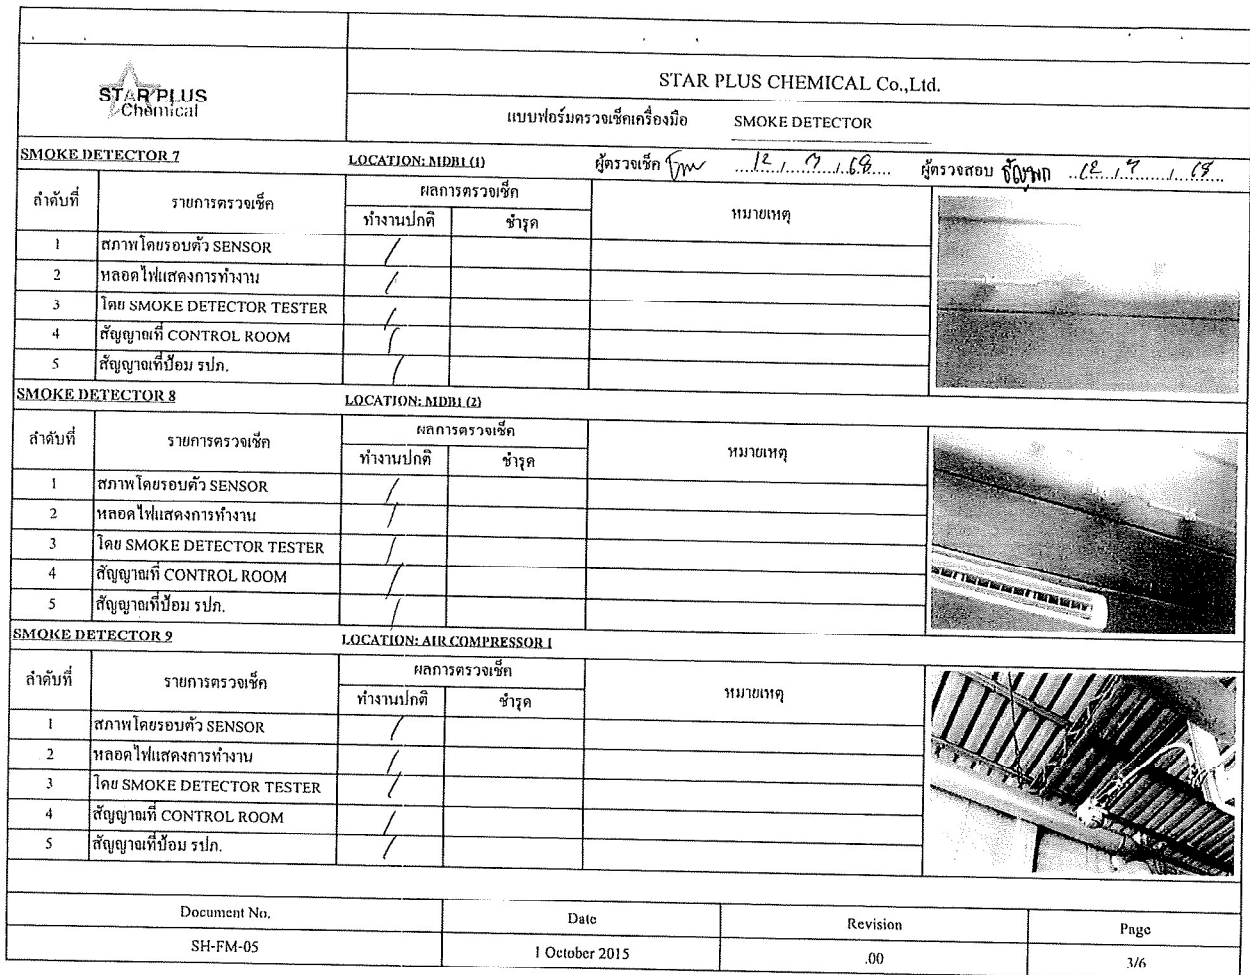 STAR PLUS
Chemical
STAR PLUS CHEMICAL Co.,Ltd.
แบบฟอร์มตรวจเช็คเครื่องมือ SMOKE DETECTOR
SMOKE DETECTOR 7 LOCATION: MDB1 (1) ผู้ตรวจเช็ค 12 / 7 / 68 ผู้ตรวจสอบ 12 / 7 / 68
ลำดับที่ รายการตรวจเช็ค ผลการตรวจเช็ค หมายเหตุ
ทำงานปกติ ชำรุด
1 สภาพโดยรอบตัว SENSOR /
2 หลอดไฟแสดงการทำงาน /
3 โดย SMOKE DETECTOR TESTER /
4 สัญญาณที่ CONTROL ROOM /
5 สัญญาณที่ป้อม รปภ. /
SMOKE DETECTOR 8 LOCATION: MDB1 (2)
ลำดับที่ รายการตรวจเช็ค ผลการตรวจเช็ค หมายเหตุ
ทำงานปกติ ชำรุด
1 สภาพโดยรอบตัว SENSOR /
2 หลอดไฟแสดงการทำงาน /
3 โดย SMOKE DETECTOR TESTER /
4 สัญญาณที่ CONTROL ROOM /
5 สัญญาณที่ป้อม รปภ. /
SMOKE DETECTOR 9 LOCATION: AIR COMPRESSOR 1
ลำดับที่ รายการตรวจเช็ค ผลการตรวจเช็ค หมายเหตุ
ทำงานปกติ ชำรุด
1 สภาพโดยรอบตัว SENSOR /
2 หลอดไฟแสดงการทำงาน /
3 โดย SMOKE DETECTOR TESTER /
4 สัญญาณที่ CONTROL ROOM /
5 สัญญาณที่ป้อม รปภ. /
Document No. Date Revision Page
SH-FM-05 1 October 2015 .00 3/6